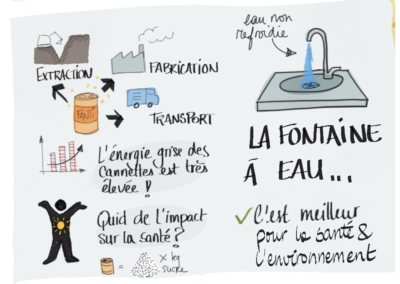 EXTRACTION
FABRICATION
FANTI
TRANSPORT
L'énergie grise des
Cannettes est très
élevée !
Quid de l'impact
sur la santé ?
=
x kg
sucre
eau non
refroidie
LA FONTAINE
À EAU...
C'est meilleur
pour la santé &
l'environnement